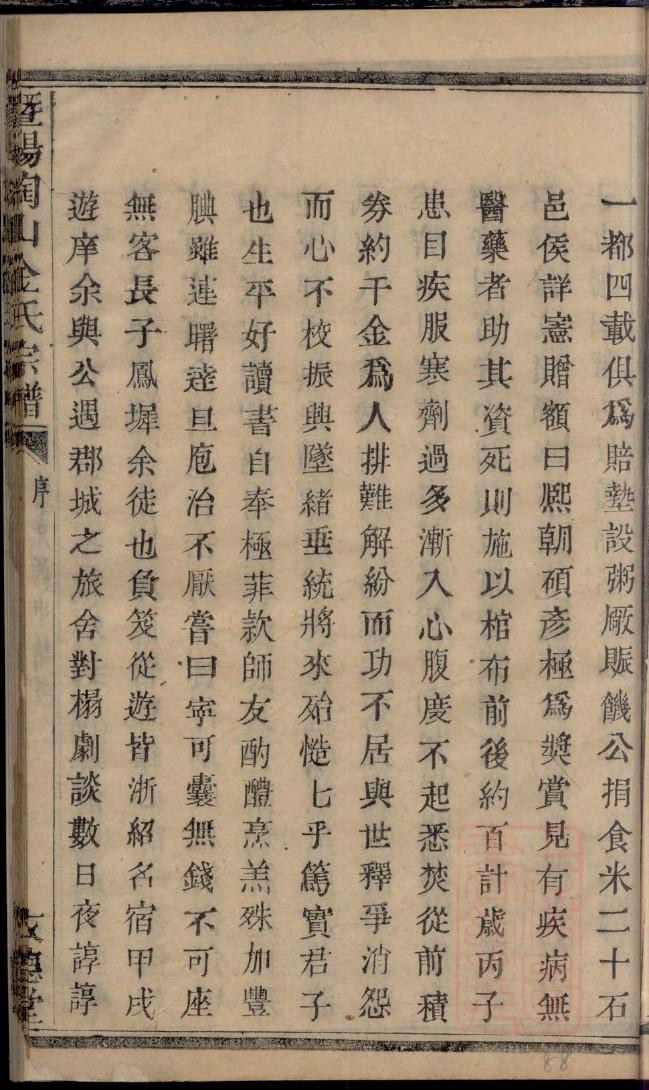 一都四載俱爲賠墊設粥廠賑饑公捐食米二十石
邑侯詳憲贈額曰熈朝碩彥極爲奬賞見有疾病無
醫藥者助其資死則施以棺布前後約百計歲丙子
患目疾服寒劑過多漸入心腹度不起悉焚從前積
劵約千金爲人排難解紛而功不居與世釋爭消怨
而心不校振興墜緒垂統將來殆慥七乎篤實君子
也生平好讀書自奉極菲款師友酌醴烹羔殊加豐
腆雖連曙達旦庖治不厭嘗曰寧可囊無錢不可座
無客長子鳳墀余徒也負笈從遊皆浙紹名宿甲戌
遊庠余與公遇郡城之旅舍對榻劇談數日夜諄諄
暨陽陶山金氏宗譜
序
文德堂
88